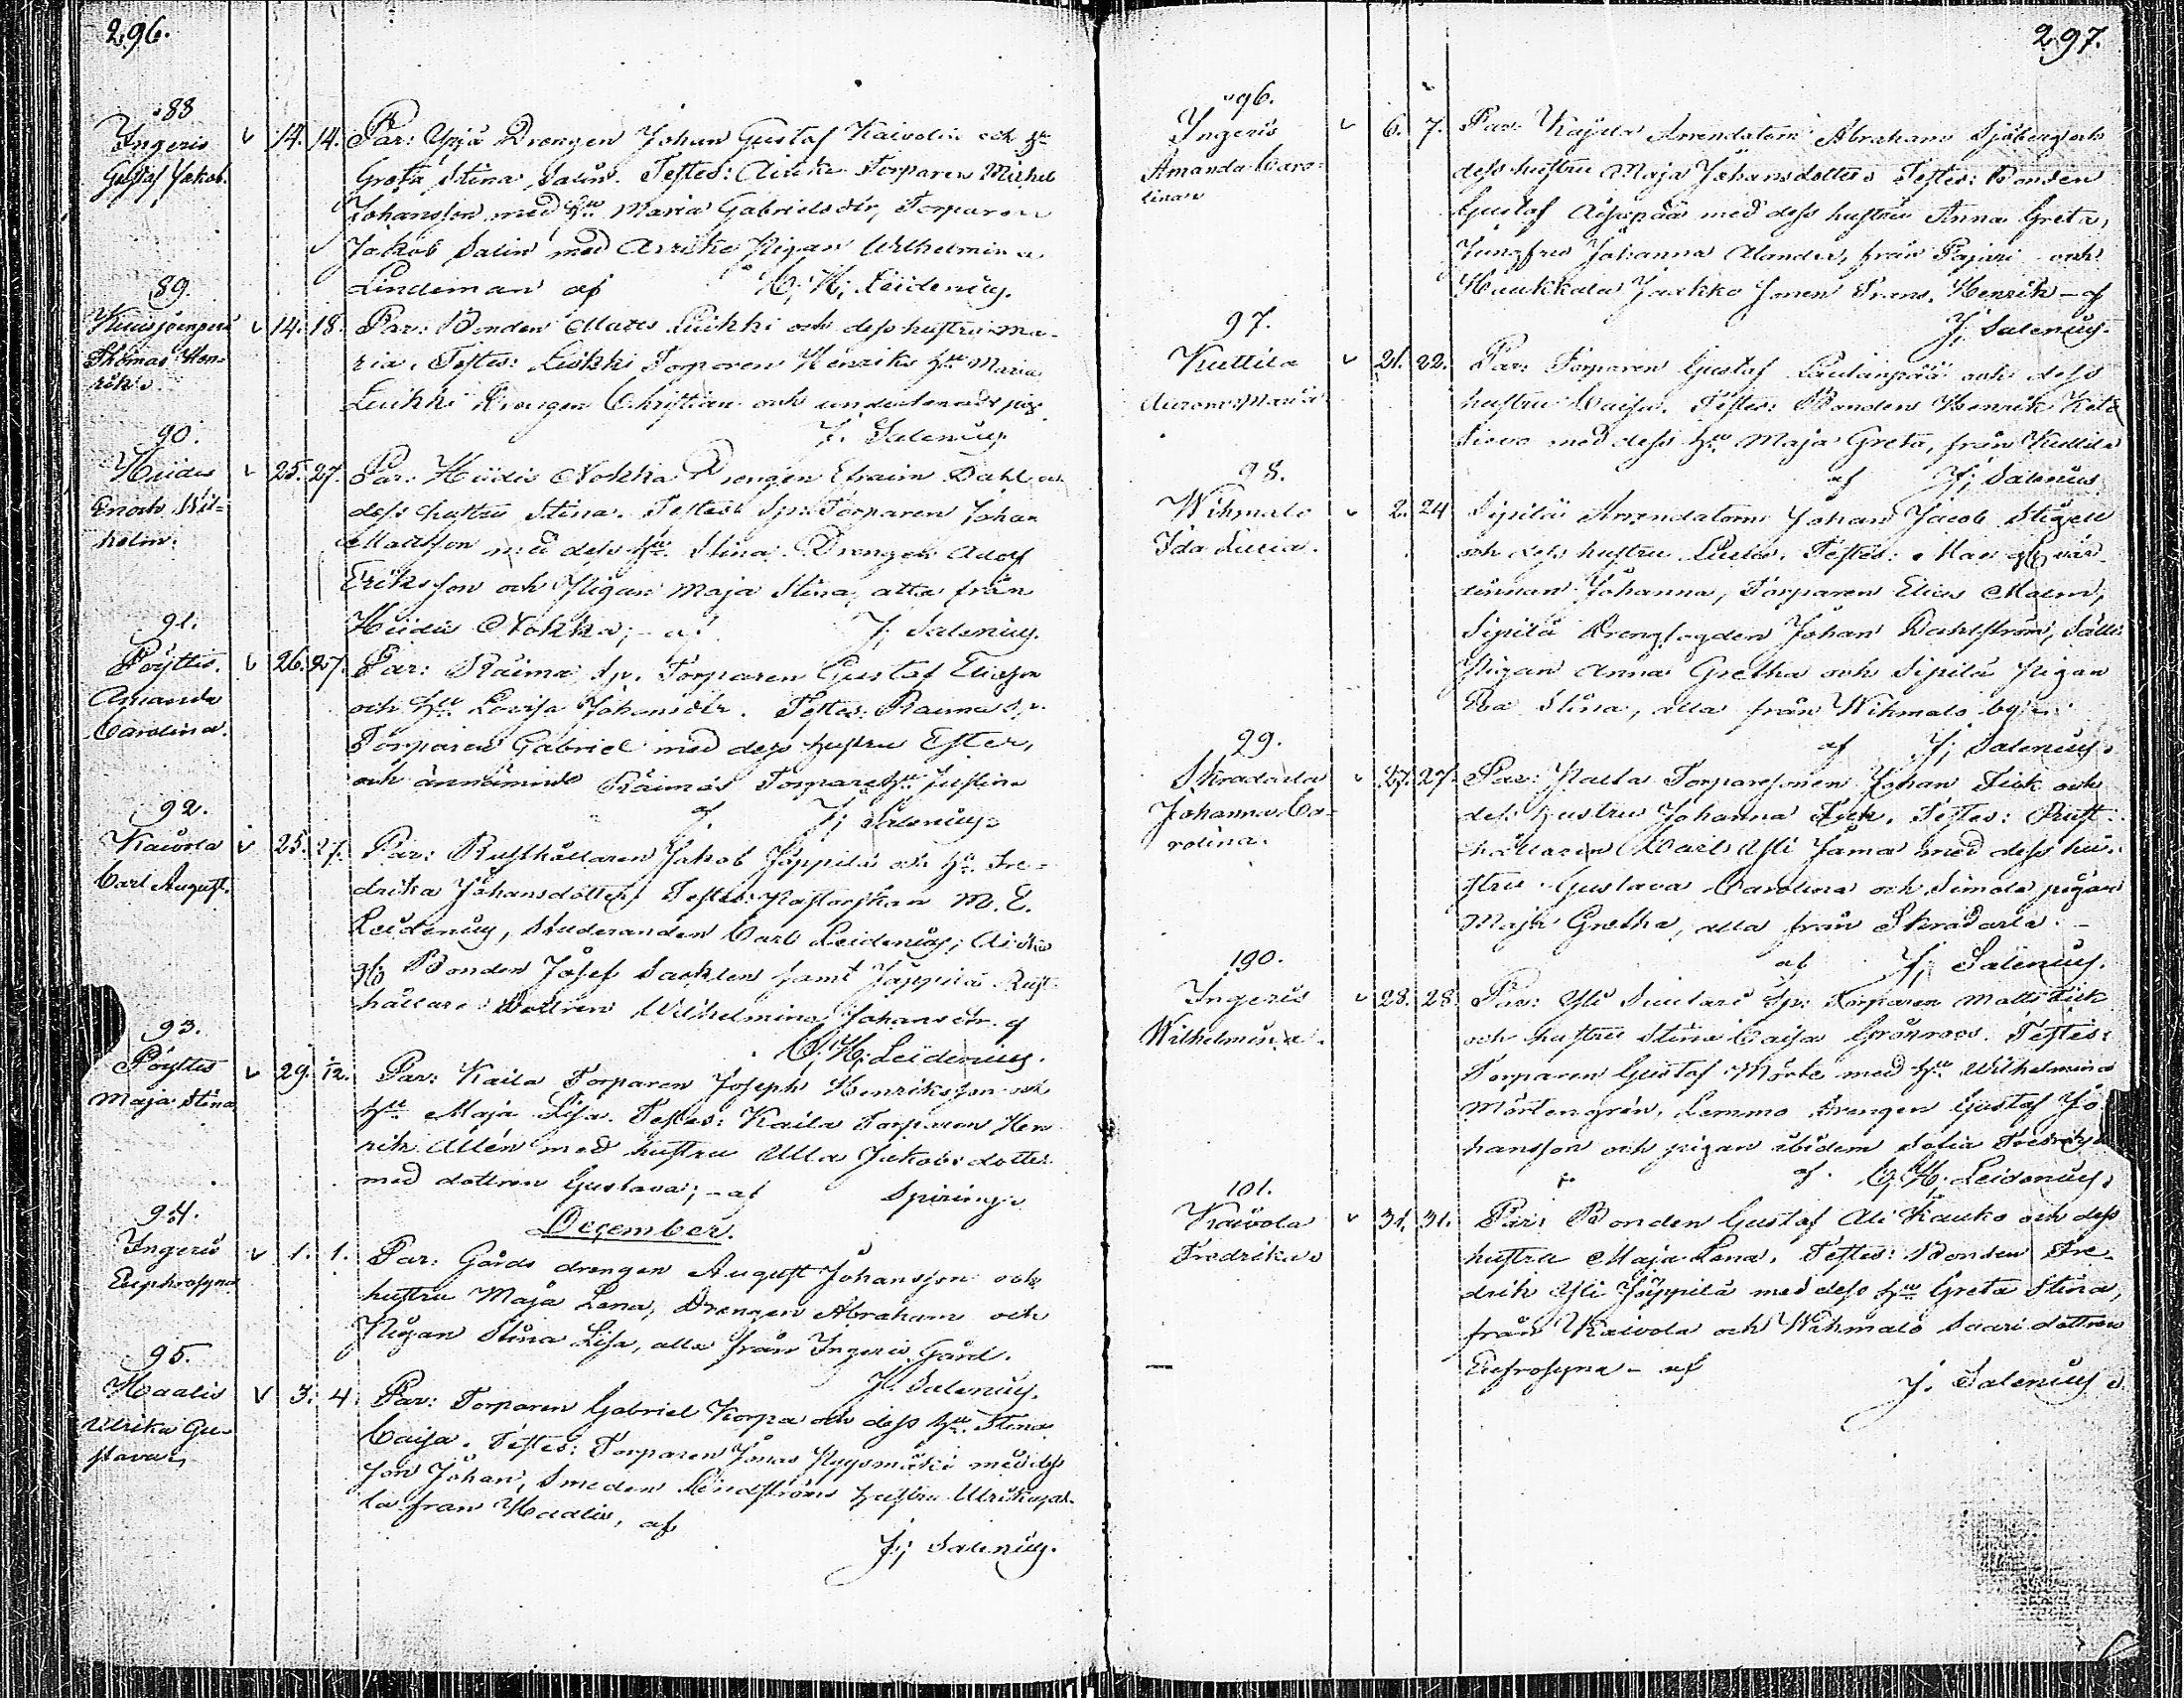 296.
88
Ingeris
Gustaf Jakob.
14. 14. Par: Ypjä Drengen Johan Gustaf Kaivola och Hu
Greta Stina Salin. Testes: Torparen Michel
Johansson med Hu Maria Gabrielsdr, Torparen
Jakob Salin med Pigan Wilhelmina
Lindeman af C. H. Leidenius.
89.
Thomas Hen-
rik.
14. 18. Par: Bonden Matts Leikki och dess hustru Ma-
ria. Testes: Leikki Torparen Henriks Hu Maria
Leikki Drengen Christian och
J. Salenius
90.
Hiidis
Enoch Wil-
helm.
25. 27. Par: Hiidis Nokka Drengen Efraim Dahl och
dess hustru Stina. Testes: Sp: Torparen Johan
Mattsson med dess Hu Stina. Drengen Adolf
Eriksson och Pigan Maja Stina, alla från
Hiidis Nokka; - af J. Salenius.
91.
Pöyttis.
Amanda
Carolina.
26. 27. Par: Raima Sp. Torparen Gustaf Eliasson
och Hu Lovisa Johansdr. Testes: Raima Sp.
Torparen Gabriel med dess hustru Ester,
och Raimas Torpare Hu Justina
af J; Salenius.
92.
Kaivola
Carl August.
25. 27. Par: Rusthållaren Jakob Jöppilä och Hu Fre-
drika Johansdotter, Testes: Pastorskan M. E.
Leidenius, Studeranden Carl Leidenius;
Bonden Josef samt Jöppilä Rust-
hållare Dottren Wilhelmina Johansdr. af
C. H. Leidenius.
93.
Pöyttis
Maja Stina
29. 1/12. Par: Kaila Torparen Joseph Henriksson och
Hu Maja Lisa. Testes: Kaila Torparen Hen
rik Allén med hustru Ulla Jakobsdotter
med dottren Gustava; - af Spiring.
December.
94.
Ingeris
Euphrosyna
1. 1. Par: Gårds drengen August Johansson och
hustru Maja Lena, Drengen Abraham och
Pigan Stina Lisa, alla från Ingeris Gård.
J. Salenius.
95.
Haalis
Ulrika Gu-
stava
3. 4. Par: Torparen Gabriel Korpa och dess Hu. Stina
Caisa. Testes: Torparen Jonas med dess
son Johan, Smeden Lindströms hustru Ulrika, al-
la från Haalis, af
J; Salenius.
297.
96.
Ingeris
Amanda Caro-
lina
6. 7. Par: Arrendatorn Abraham Sjöberg och
dess hustru Maja Johansdotter. Testes: Bonden
Gustaf med dess hustru Anna Greta,
Jungfru Johanna Alander, från Pajari och
Haukkala Jaakko sonen Frans Henrik - af
J. Salenius.
97.
Kuttila
Aurora Maria
21. 22. Par: Torparen Gustaf Laulanpää och dess
hustru Caisa. Testes: Bonden Henrik
med dess Hu Maja Greta, från Kuttila
af J; Salenius.
98.
Wihmalo
Ida Lucia.
2. 24 Sipilä Arrendatorn Johan Jacob Stigell
och dess hustru Lucia. Testes: vär-
dinnan Johanna, Torparen Elias Malm,
Sipilä Johan Dahlström,
Pigan Anna Gretha och Sipilä Pigan
Eva Stina, alla från Wihmalo by.
af J; Salenius.
99.
Skradarla
Johanna Ca-
rolina.
27. 27. Par: Torparesonen Johan Fisk och
dess hustru Johanna Fisk. Testes: Rust-
hållaren Carl Yli Jama med dess hu-
stru Gustava Carolina och Simola pigan
Maja Gretha, alla från Skradarla. -
af J; Salenius.
100.
Ingeris
Wilhelmina.
28. 28. Par: Yli Sp: Torparen Matts Fisk
och hustru Stina Caisa Grönroos. Testes:
Torparen Gustaf Mört med Hu Wilhelmina
Mörtengrén, Lemmo drengen Gustaf Jo
hansson och pigan ibidem Sofia
af C. H. Leidenius.
101.
Kaivola
Fredrika
31. 31. Par: Bonden Gustaf Ali Kauko och dess
hustru Maja Lena, Testes: Bonden Fre-
drik Yli Jöppilä med dess Hu Greta Stina,
från Kaivola och Wihmalo Saari dottren
Eufrosyna - af
J. Salenius